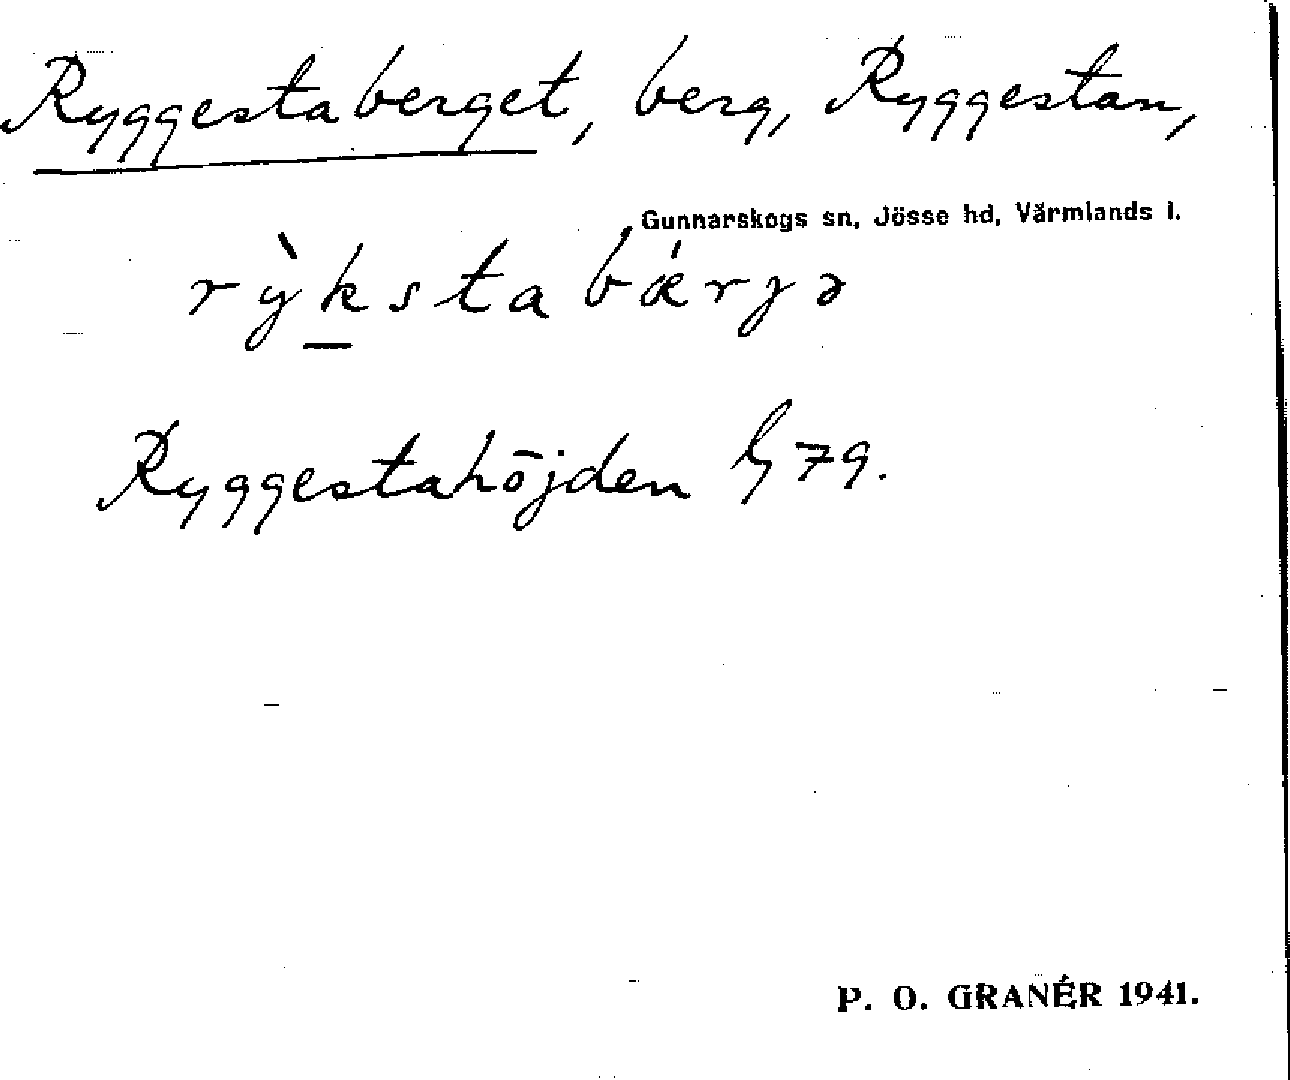 Ryggestaberget, berg, Ryggestan,
Gunnarskogs sn, Jösse hd, Värmlands l.
rỳkstabǽrjə
Ryggestahöjden G 79.
P. O. GRANÉR 1941.